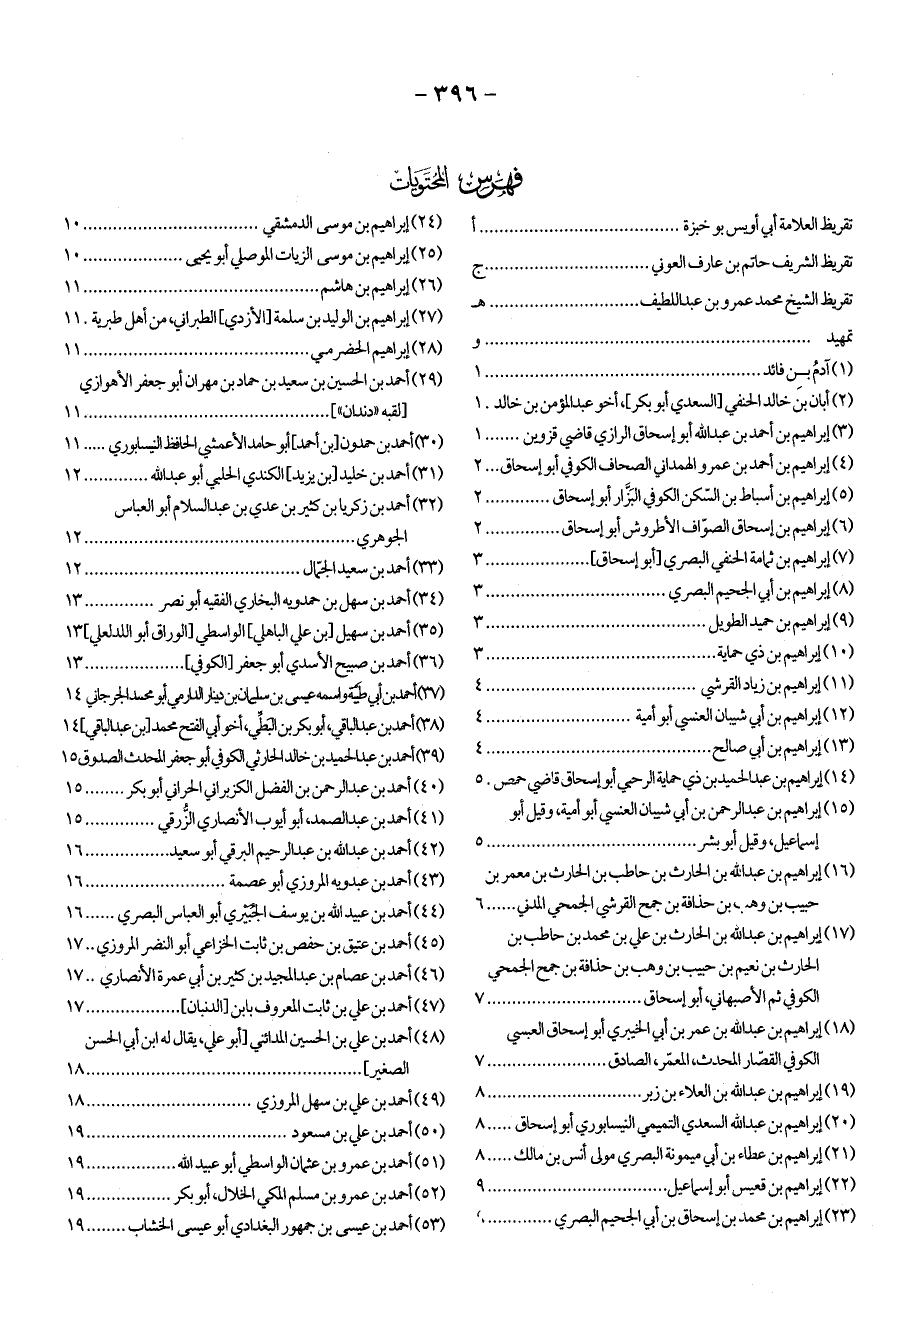 - ٣٩٦ -
فهرس المحتويات
تقريظ العلامة أبي أويس بو خبزة ..................... أ
تقريظ الشريف حاتم بن عارف العوني ..................... ج
تقريظ الشيخ محمد عمرو بن عبداللطيف ..................... هـ
تمهيد ..................... و
(١) آدمُ بِن فائد ..................... ١
(٢) أبان بن خالد الحنفي [السعدي أبو بكر]، أخو عبدالمؤمن بن خالد . ١
(٣) إبراهيم بن أحمد بن عبدالله أبو إسحاق الرازي قاضي قزوين ....... ١
(٤) إبراهيم بن أحمد بن عمرو الهمداني الصحاف الكوفي أبو إسحاق... ٢
(٥) إبراهيم بن أسباط بن السّكن الكوفي البزَّار أبو إسحاق ............ ٢
(٦) إبراهيم بن إسحاق الصوّاف الأطروش أبو إسحاق ............ ٢
(٧) إبراهيم بن ثمامة الحنفي البصري [أبو إسحاق] ..................... ٣
(٨) إبراهيم بن أبي الجحيم البصري ..................... ٣
(٩) إبراهيم بن حميد الطويل ..................... ٣
(١٠) إبراهيم بن ذي حماية ..................... ٣
(١١) إبراهيم بن زياد القرشي ..................... ٤
(١٢) إبراهيم بن أبي شيبان العنسي أبو أمية ..................... ٤
(١٣) إبراهيم بن أبي صالح ..................... ٤
(١٤) إبراهيم بن عبدالحميد بن ذي حماية الرحبي أبو إسحاق قاضي حمص . ٥
(١٥) إبراهيم بن عبدالرحمن بن أبي شيبان العنسي أبو أمية، وقيل أبو
إسماعيل، وقيل أبو بشر ..................... ٥
(١٦) إبراهيم بن عبدالله بن الحارث بن حاطب بن الحارث بن معمر بن
حبيب بن وهب بن حذافة بن جمح القرشي الجمحي المدني ...... ٦
(١٧) إبراهيم بن عبدالله بن الحارث بن علي بن محمد بن حاطب بن
الحارث بن نعيم بن حبيب بن وهب بن حذافة بن جمح الجمحي
الكوفي ثم الأصبهاني، أبو إسحاق ..................... ٧
(١٨) إبراهيم بن عبدالله بن عمر بن أبي الخيبري أبو إسحاق العبسي
الكوفي القصّار المحدث، المعمّر، الصادق ..................... ٧
(١٩) إبراهيم بن عبدالله بن العلاء بن زبر ..................... ٨
(٢٠) إبراهيم بن عبدالله السعدي التميمي النيسابوري أبو إسحاق ..... ٨
(٢١) إبراهيم بن عطاء بن أبي ميمونة البصري مولى أنس بن مالك ..... ٨
(٢٢) إبراهيم بن قعيس أبو إسماعيل ..................... ٩
(٢٣) إبراهيم بن محمد بن إسحاق بن أبي الجحيم البصري ..............
(٢٤) إبراهيم بن موسى الدمشقي ..................... ١٠
(٢٥) إبراهيم بن موسى الزيات الموصلي أبو يحيى ..................... ١٠
(٢٦) إبراهيم بن هاشم ..................... ١١
(٢٧) إبراهيم بن الوليد بن سلمة [الأزدي] الطبراني، من أهل طبرية . ١١
(٢٨) إبراهيم الحضرمي ..................... ١١
(٢٩) أحمد بن الحسين بن سعيد بن حماد بن مهران أبو جعفر الأهوازي
[لقبه «دندان»] ..................... ١١
(٣٠) أحمد بن حمدون [بن أحمد] أبو حامد الأعمشي الحافظ النيسابوري ..... ١١
(٣١) أحمد بن خليد [بن يزيد] الكندي الحلبي أبو عبدالله ............. ١٢
(٣٢) أحمد بن زكريا بن كثير بن عدي بن عبدالسلام أبو العباس
الجوهري ..................... ١٢
(٣٣) أحمد بن سعيد الجمّال ..................... ١٢
(٣٤) أحمد بن سهل بن حمدويه البخاري الفقيه أبو نصر ............ ١٣
(٣٥) أحمد بن سهيل [بن علي الباهلي] الواسطي [الوراق أبو اللدلعلي] ١٣
(٣٦) أحمد بن صبيح الأسدي أبو جعفر [الكوفي] ..................... ١٣
(٣٧) أحمد بن أبي طَيْبَة واسمه عيسى بن سلمان بن دينار الدارمي أبو محمد الجرجاني ١٤
(٣٨) أحمد بن عبدالباقي، أبو بكر بن البَطِّي، أخو أبي الفتح محمد [بن عبدالباقي] ١٤
(٣٩) أحمد بن عبدالحميد بن خالد الحارثي الكوفي أبو جعفر المحدث الصدوق ١٥
(٤٠) أحمد بن عبدالرحمن بن الفضل الكزبراني الحراني أبو بكر ........ ١٥
(٤١) أحمد بن عبدالصمد، أبو أيوب الأنصاري الزُّرقي .............. ١٥
(٤٢) أحمد بن عبدالله بن عبدالرحيم البرقي أبو سعيد ................. ١٦
(٤٣) أحمد بن عبدويه المروزي أبو عصمة ..................... ١٦
(٤٤) أحمد بن عبيد الله بن يوسف الجُبَيْري أبو العباس البصري ...... ١٦
(٤٥) أحمد بن عتيق بن حفص بن ثابت الخزاعي أبو النضر المروزي .. ١٧
(٤٦) أحمد بن عصام بن عبدالمجيد بن كثير بن أبي عمرة الأنصاري .. ١٧
(٤٧) أحمد بن علي بن ثابت المعروف بابن [الدنبان] ..................... ١٧
(٤٨) أحمد بن علي بن الحسين المدائني [أبو علي، يقال له ابن أبي الحسن
الصغير] ..................... ١٨
(٤٩) أحمد بن علي بن سهل المروزي ..................... ١٨
(٥٠) أحمد بن علي بن مسعود ..................... ١٩
(٥١) أحمد بن عمرو بن عثمان الواسطي أبو عبيد الله ................. ١٩
(٥٢) أحمد بن عمرو بن مسلم المكي الخلال، أبو بكر ................. ١٩
(٥٣) أحمد بن عيسى بن جمهور البغدادي أبو عيسى الخشاب ........ ١٩